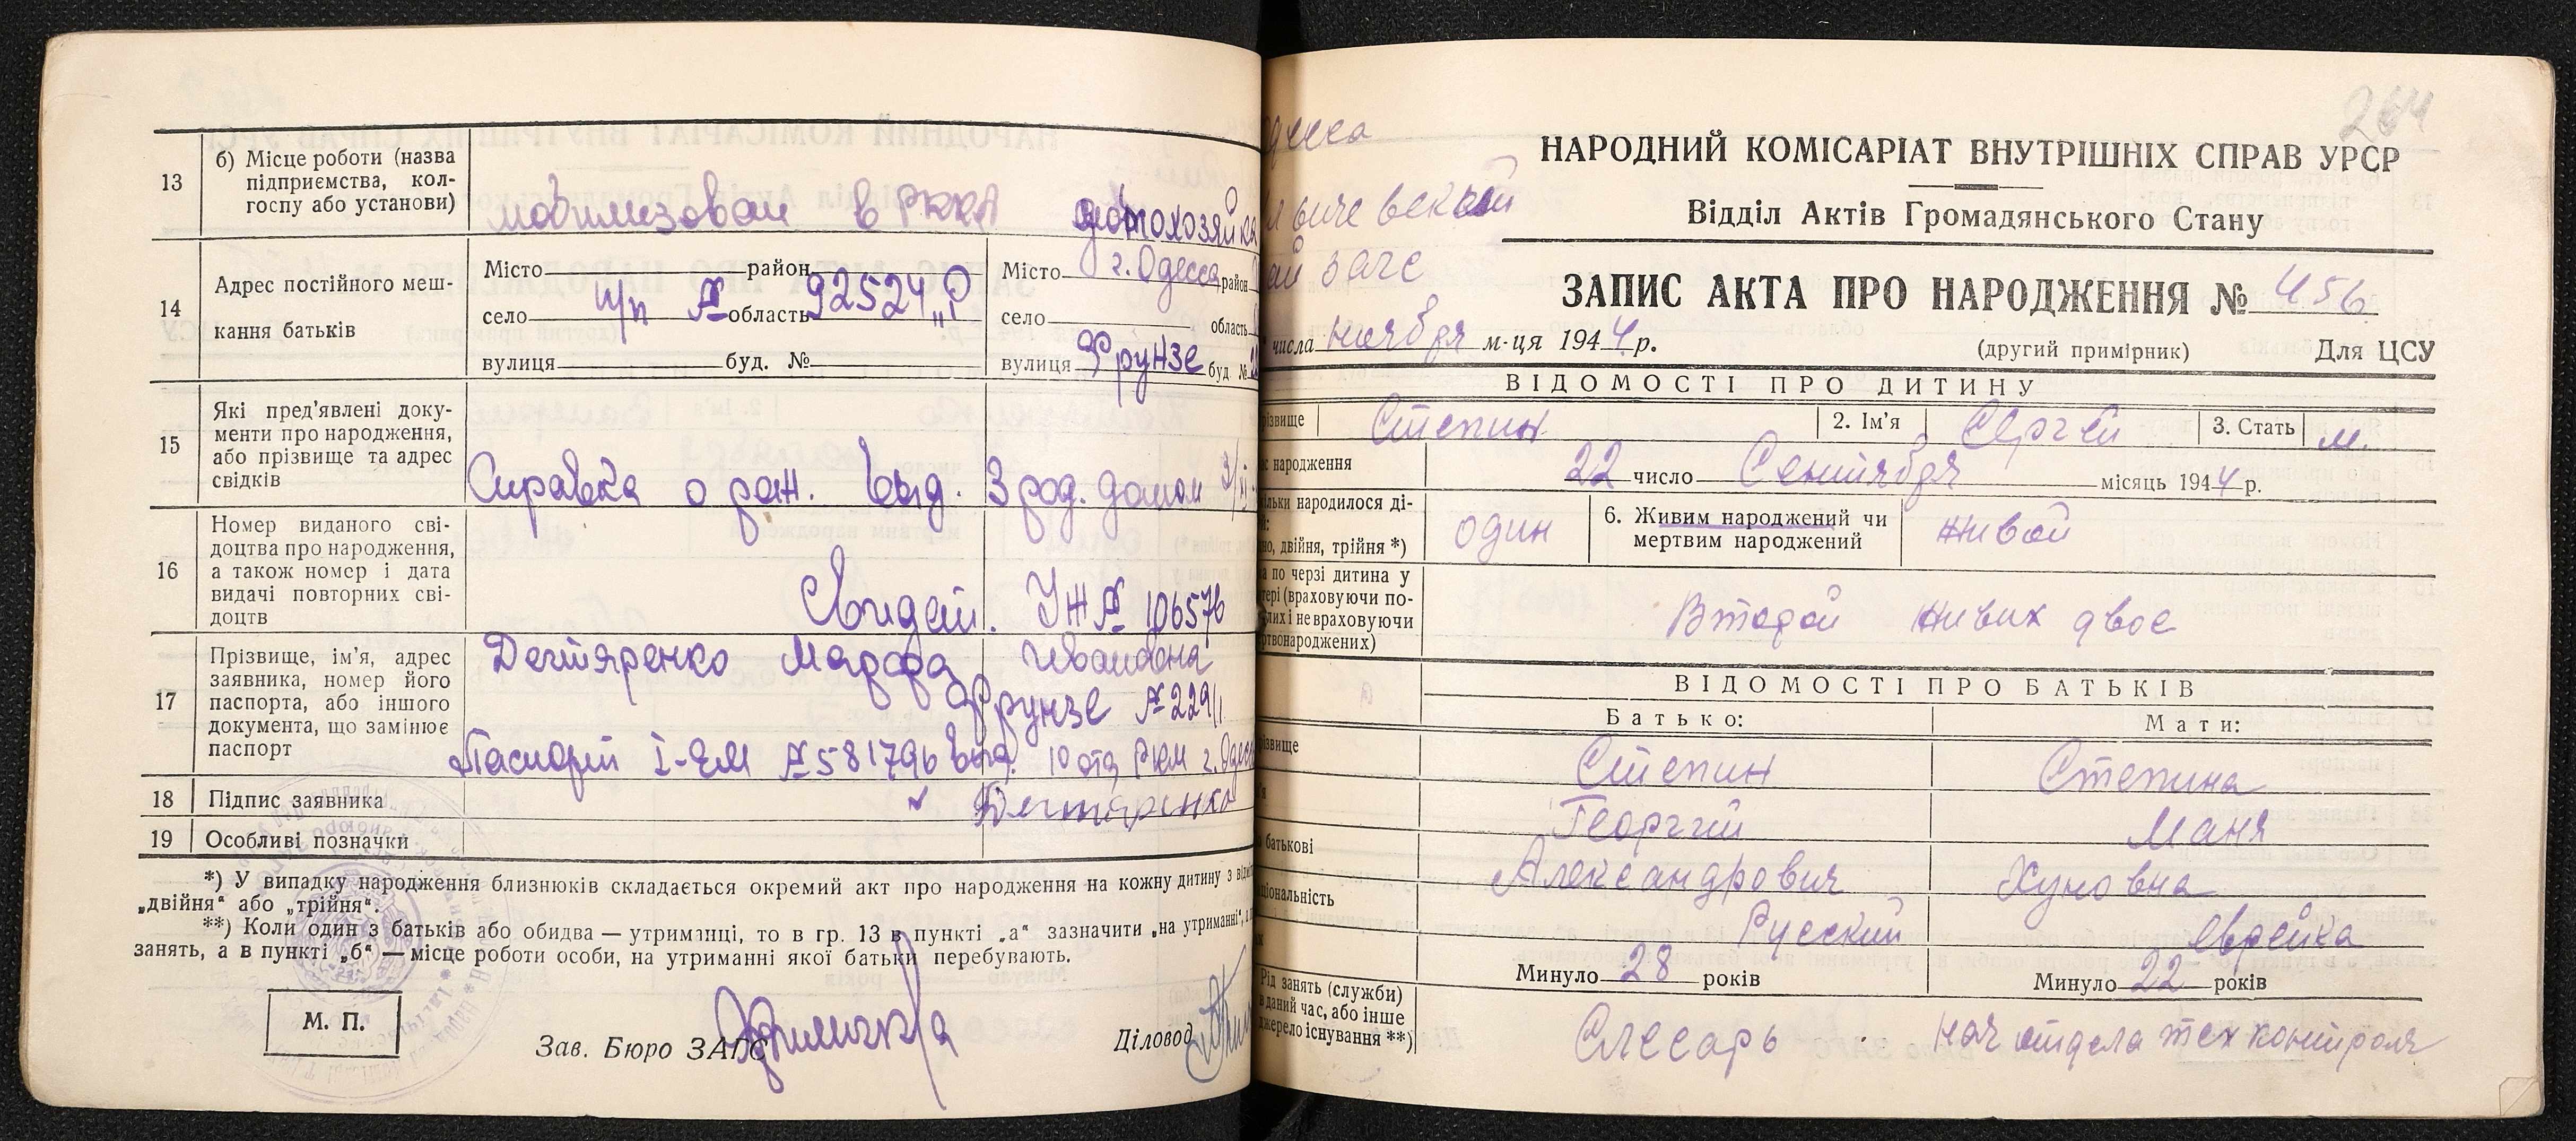 13
б) Місце роботи (назва
підприємства, кол-
госпу або установи)
мобилизован в РККА домохозяйка
14
Адрес постійного меш-
кання батьків
Місто район
п/п № 92524 „Р
село область
вулиця буд. №
Місто г. Одесса район
село область
вулиця Фрунзе буд №
15
Які пред'явлені доку-
менти про народження,
або прізвище та адрес
свідків
Справка о рож. выд. 3 род. домом 3/XI
16
Номер виданого сві-
доцтва про народження,
а також номер і дата
видачі повторних сві-
доцтв
Свидет. УЖ № 106576
17
Прізвище, ім'я, адрес
заявника, номер його
паспорта, або іншого
документа, що замінює
паспорт
Дегтяренко Марфа Ивановна
Фрунзе № 229/1
Паспорт I-ЕМ № 581796 выд. 10 отд РКМ г. Одесс
18
Підпис заявника
Дегтяренко
19
Особливі позначки
*) У випадку народження близнюків складається окремий акт про народження на кожну дитину з
„двійня“ або „трійня“.
**) Коли один з батьків або обидва — утриманці, то в гр. 13 в пункті „а“ зазначити „на утриманні“,
занять, а в пункті „б“ — місце роботи особи, на утриманні якої батьки перебувають.
М. П.
Зав. Бюро ЗАГС
Діловод
264
десса
ьичевский
ай загс
НАРОДНИЙ КОМІСАРІАТ ВНУТРІШНІХ СПРАВ УРСР
Відділ Актів Громадянського Стану
ЗАПИС АКТА ПРО НАРОДЖЕННЯ № 456
числа ноября м-ця 1944 р.
(другий примірник) Для ЦСУ
ВІДОМОСТІ ПРО ДИТИНУ
різвище Степин 2. Ім'я Сергей 3. Стать м.
ас народження 22 число Сентября місяць 1944 р.
ільки народилося ді-
но, двійня, трійня *)
один
6. Живим народжений чи
мертвим народжений
живой
а по черзі дитина у
тері (враховуючи по-
лих і не враховуючи
ртвонароджених)
Второй живих двое
ВІДОМОСТІ ПРО БАТЬКІВ
Батько: Мати:
ізвище Степин Степина
'я Георгий Маня
батькові Александрович Хуновна
ціональність Русский еврейка
Минуло 28 років Минуло 22 років
Рід занять (служби)
в даний час, або інше
джерело існування **)
Слесарь нач отдела тех контроля